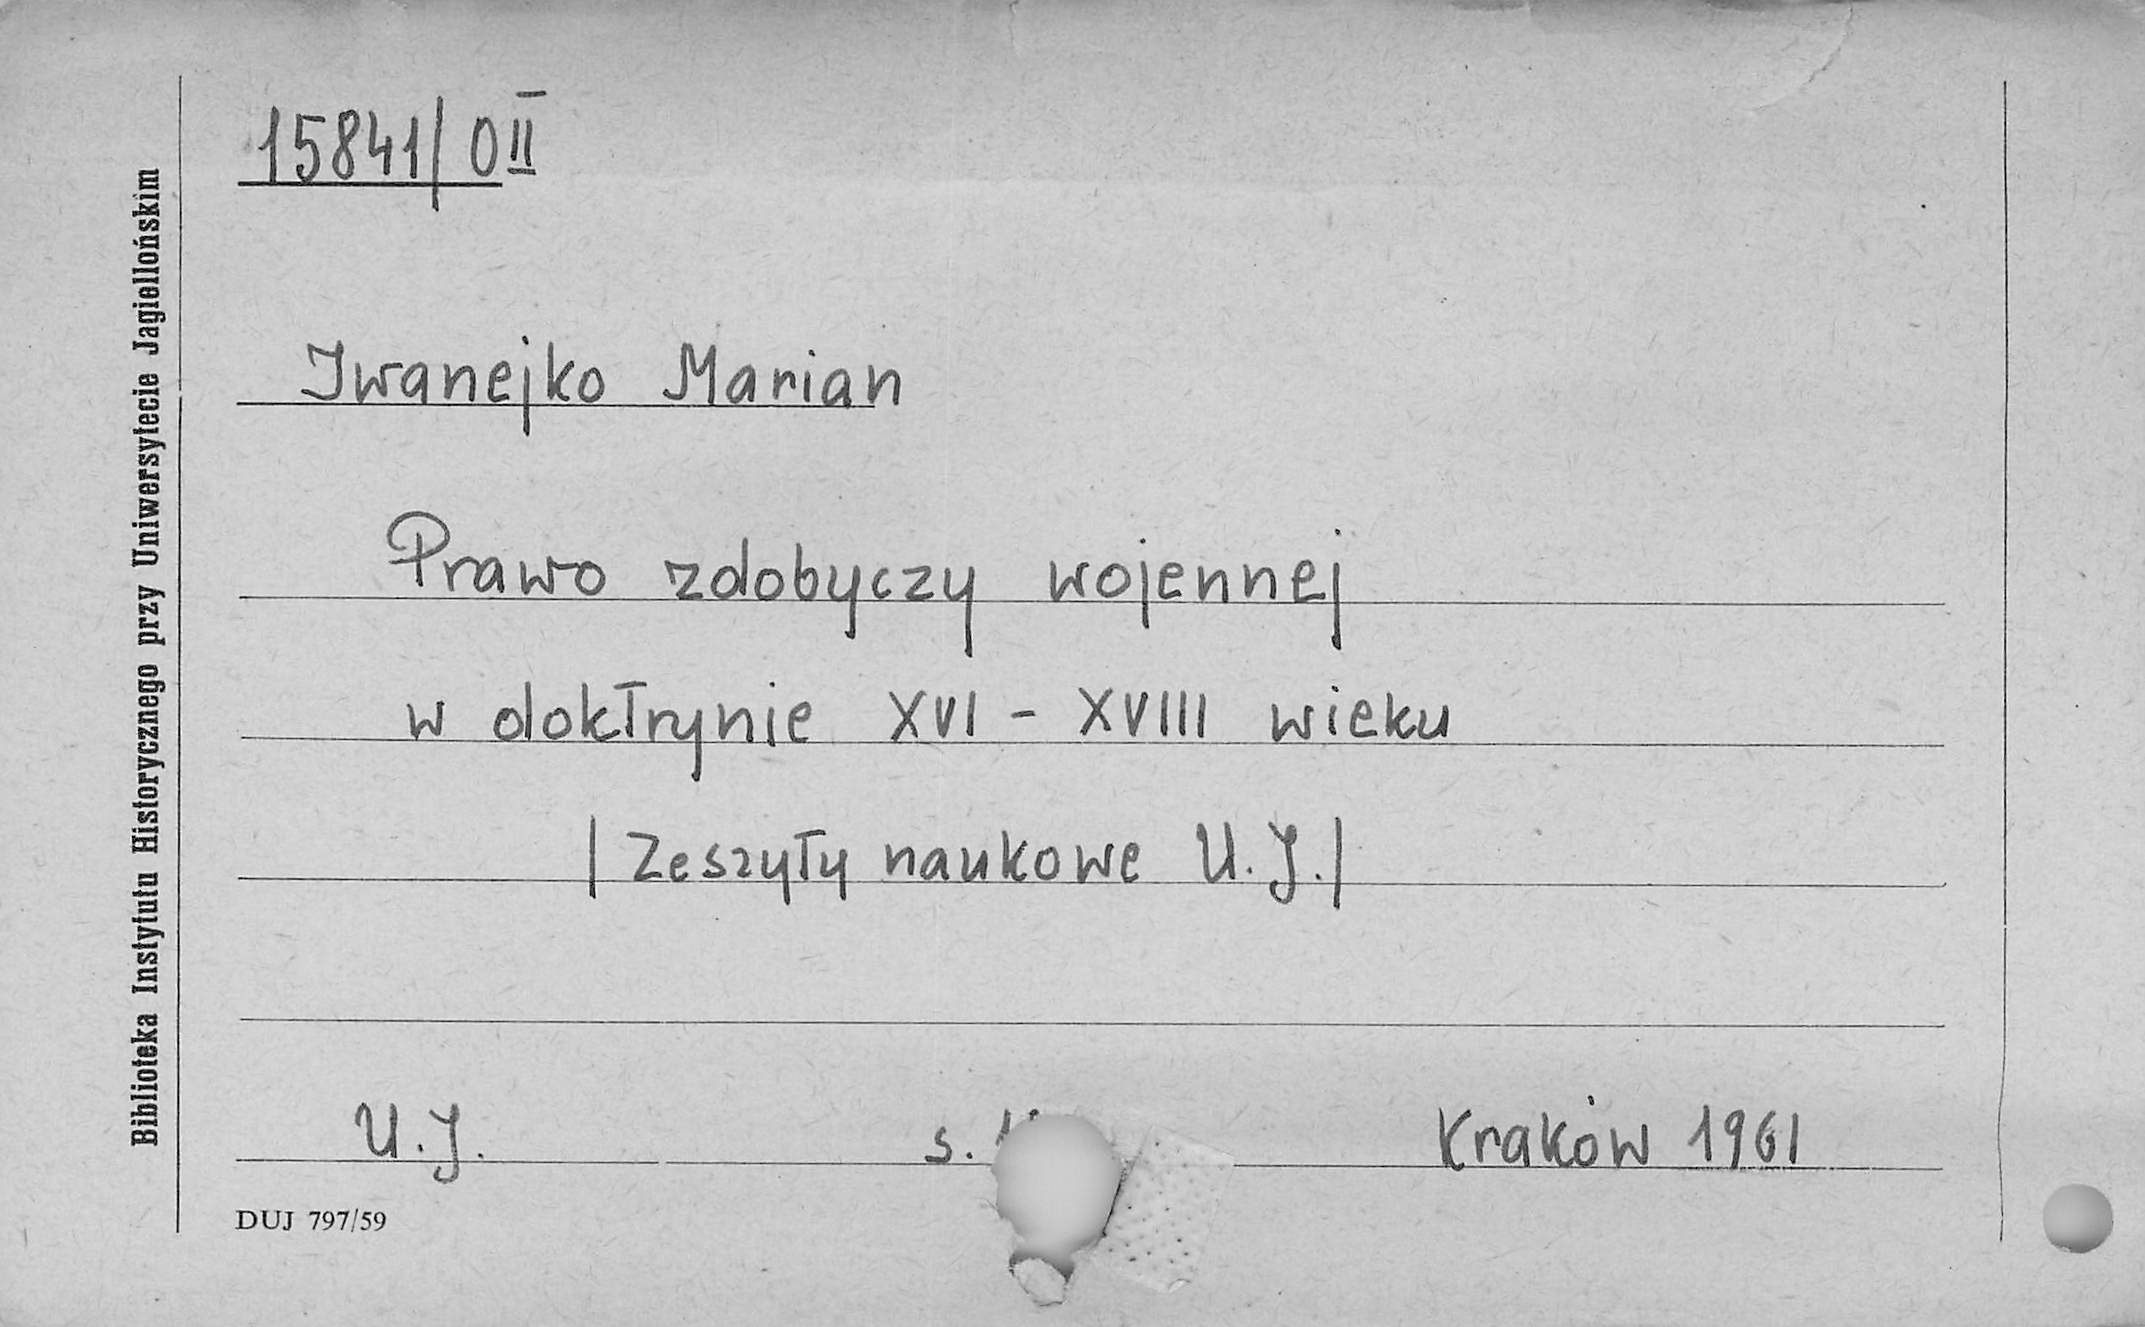 15841/0II
Iwanejko Marian
Prawo zdobyczy wojennej
w doktrynie XVI - XVIII wieku
/Zeszyty naukowe U.J./
U.J. s. Kraków 1961
DUJ 797/59
Biblioteka Instytutu Historycznego przy Uniwersytecie Jagiellońskim